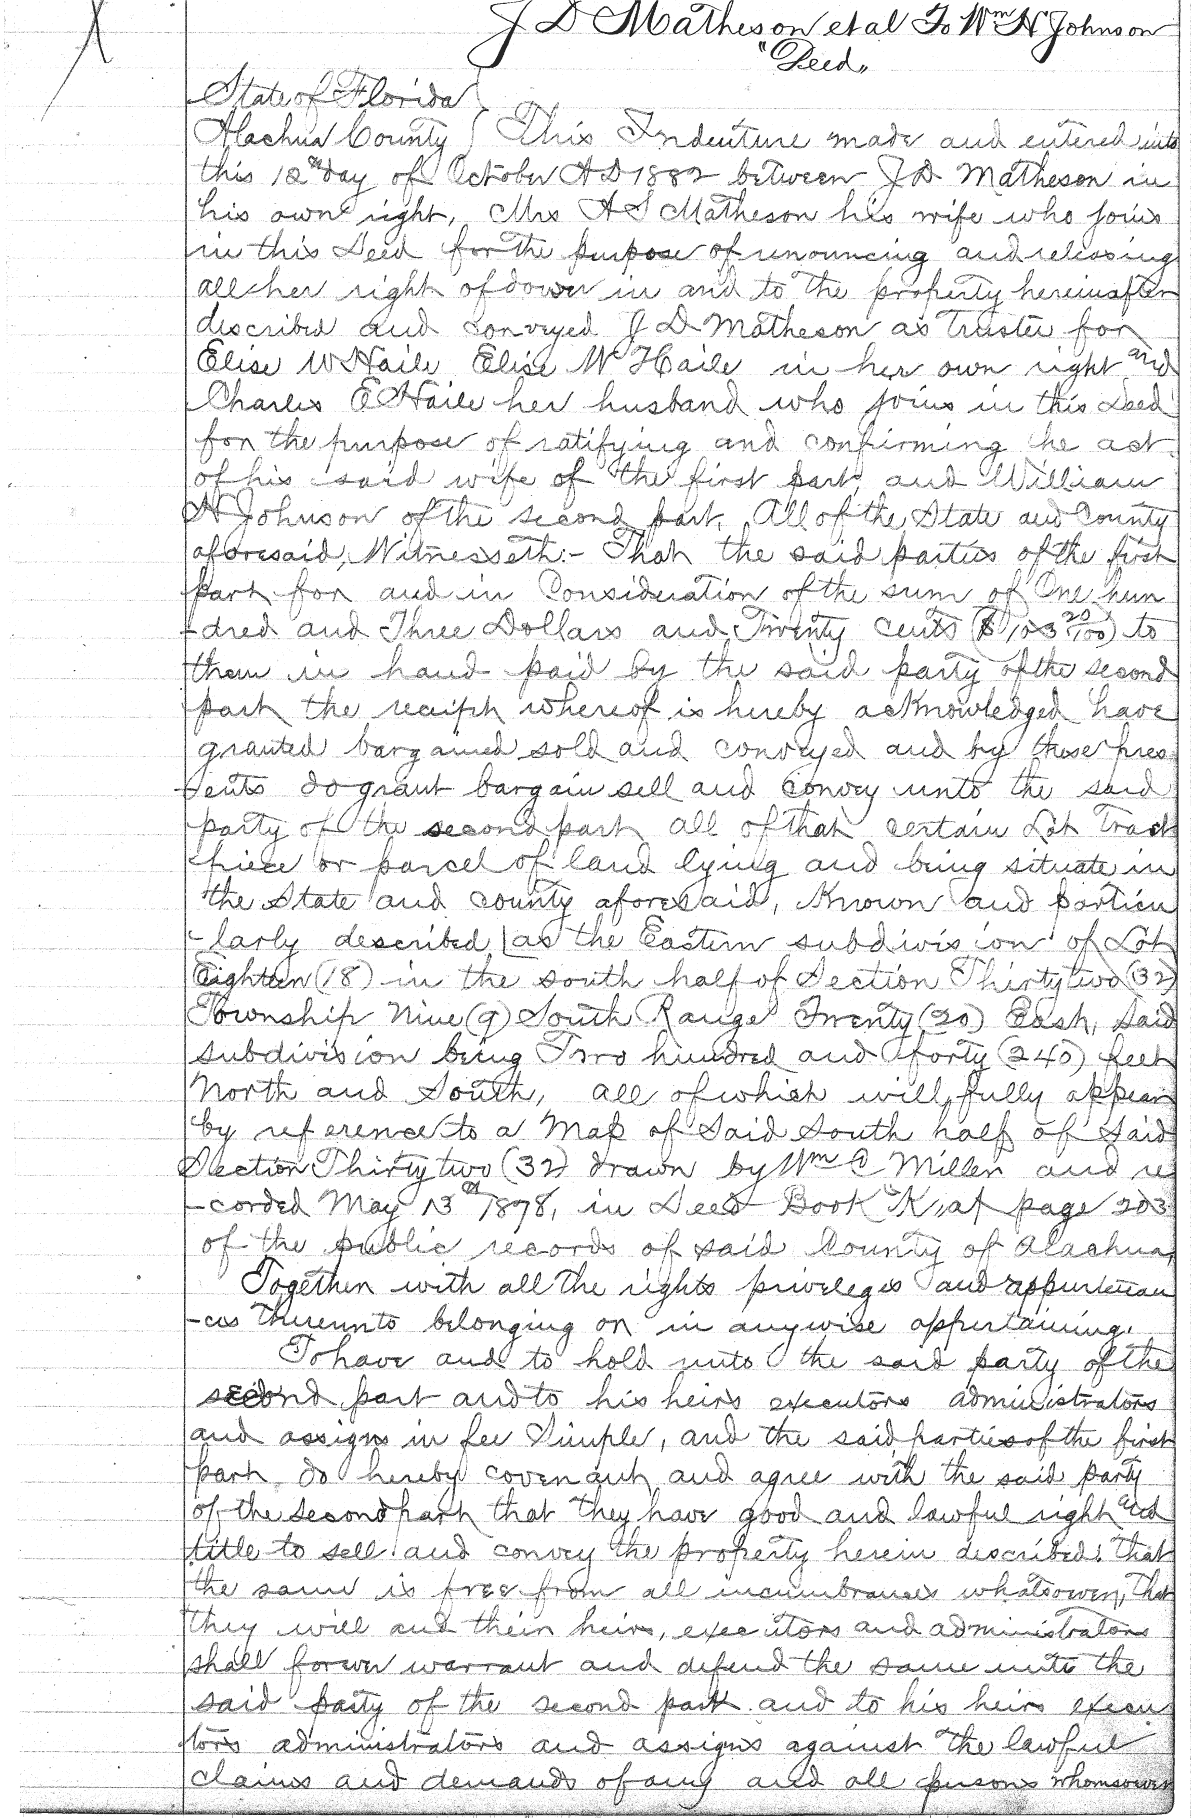 J D Matheson et al To Wm H Johnson
"Deed"
State of Florida
Alachua County } This Indenture made and entered into
this 12th day of October A D 1882 between J D Matheson in
his own right, Mrs A S Matheson his wife who joins
in this Deed for the purpose of renouncing and releasing
all her right of dower in and to the property hereinafter
described and conveyed J D Matheson as Trustee for
Elise W Haile Elise W Haile in her own right and
Charles E Haile her husband who joins in this Deed
for the purpose of ratifying and confirming the act
of his said wife of the first part, and William
H Johnson of the second part, All of the State and County
aforesaid, Witnesseth:- That the said parties of the first
part for and in Consideration of the sum of One hun
-dred and Three Dollars and Twenty cents ($103 20/100) to
them in hand paid by the said party of the second
part the receipt whereof is hereby acknowledged have
granted bargained sold and conveyed and by these pres
-ents do grant bargain sell and convey unto the said
party of the second part all of that certain Lot Tract
piece or parcel of land lying and being situate in
the State and county aforesaid, Known and particu
-larly described as the Eastern subdivision of Lot
Eighteen (18) in the south half of Section Thirty two (32)
Township Nine (9) South Range Twenty (20) East, said
subdivision being Two hundred and forty (240) feet
North and South, all of which will fully appear
by reference to a Map of Said South half of Said
Section Thirty two (32) drawn by Wm C Miller and re
-corded May 13th 1878, in Deed Book "K" at page 203
of the public records of said County of Alachua,
Together with all the rights privileges and appurtenan
-ces thereunto belonging or in anywise appertaining.
To have and to hold unto the said party of the
second part and to his heirs executors administrators
and assigns in fee Simple, and the said parties of the first
part do hereby covenant and agree with the said party
of the second part that they have good and lawful right and
title to sell and convey the property herein described: that
the same is free from all incumbrances whatsoever, that
they will and their heirs, executors and administrators
shall forever warrant and defend the same unto the
said party of the second part and to his heirs execu
tors administrators and assigns against the lawful
claims and demands of any and all persons whomsoever